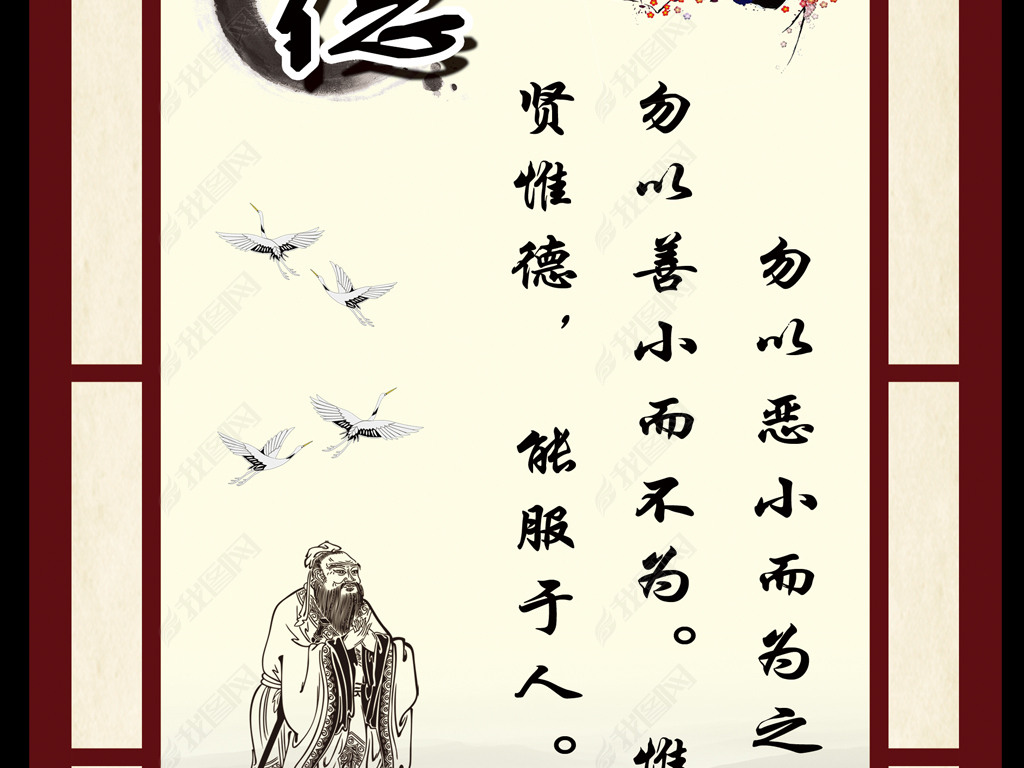 德
勿以恶小而为之
勿以善小而不为。惟
贤惟德，能服于人。